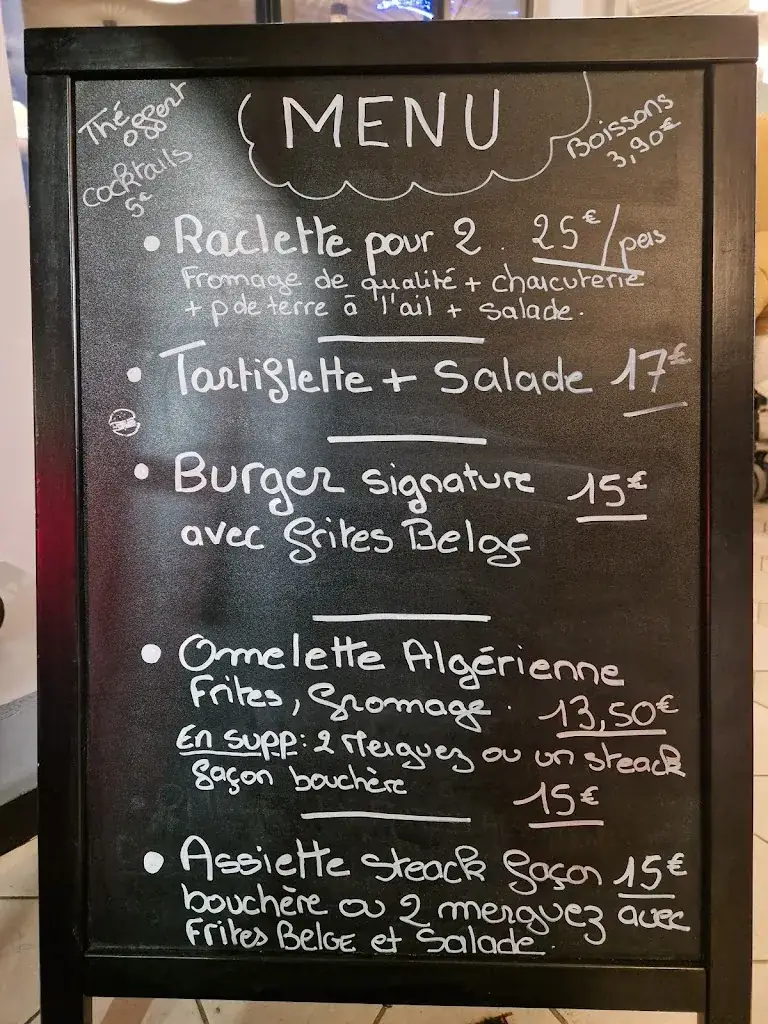 Thé offert
cocktails
5€
MENU
Boissons
3,90€
• Raclette pour 2. 25€/pers
Fromage de qualité + charcuterie
+ p de terre à l'ail + salade.
• Tartiflette + Salade 17€
• Burger signature 15€
avec frites Belge
• Omelette Algérienne
Frites, fromage. 13,50€
En supp: 2 Merguez ou un steack
façon bouchère
15€
• Assiette steack façon 15€
bouchère ou 2 merguez avec
Frites Belge et Salade.